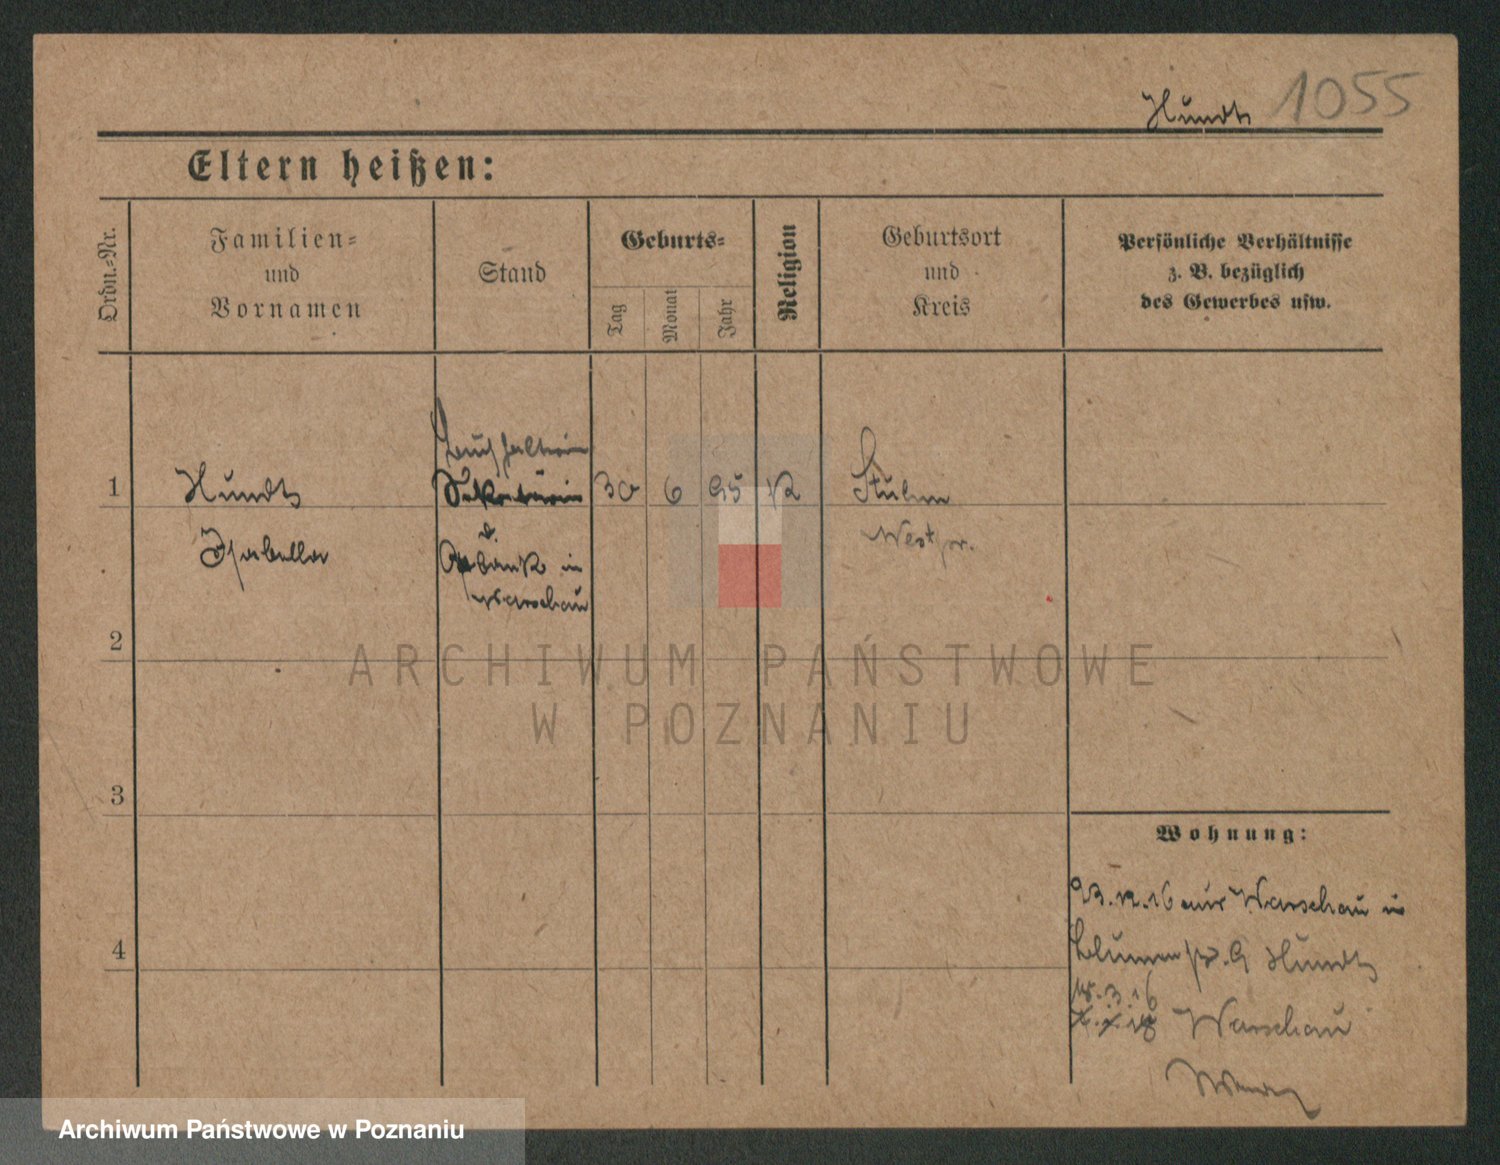 Hundt 1055
Eltern heißen:
Ordn.-Nr.
Familien-
und
Vornamen
Stand
Geburts-
Tag
Monat
Jahr
Religion
Geburtsort
und
Kreis
Persönliche Verhältnisse
z. B. bezüglich
des Gewerbes usw.
1
Hundt
Isabella
Buchhalterin
Sekretärin
bank in
Warschau
30
6
95
K
Stuhm
Westpr.
2
3
4
Wohnung:
23.12.16 aus Warschau in
Blumenstr. 9 Hundt
Warschau
ARCHIWUM PAŃSTWOWE
W POZNANIU
Archiwum Państwowe w Poznaniu